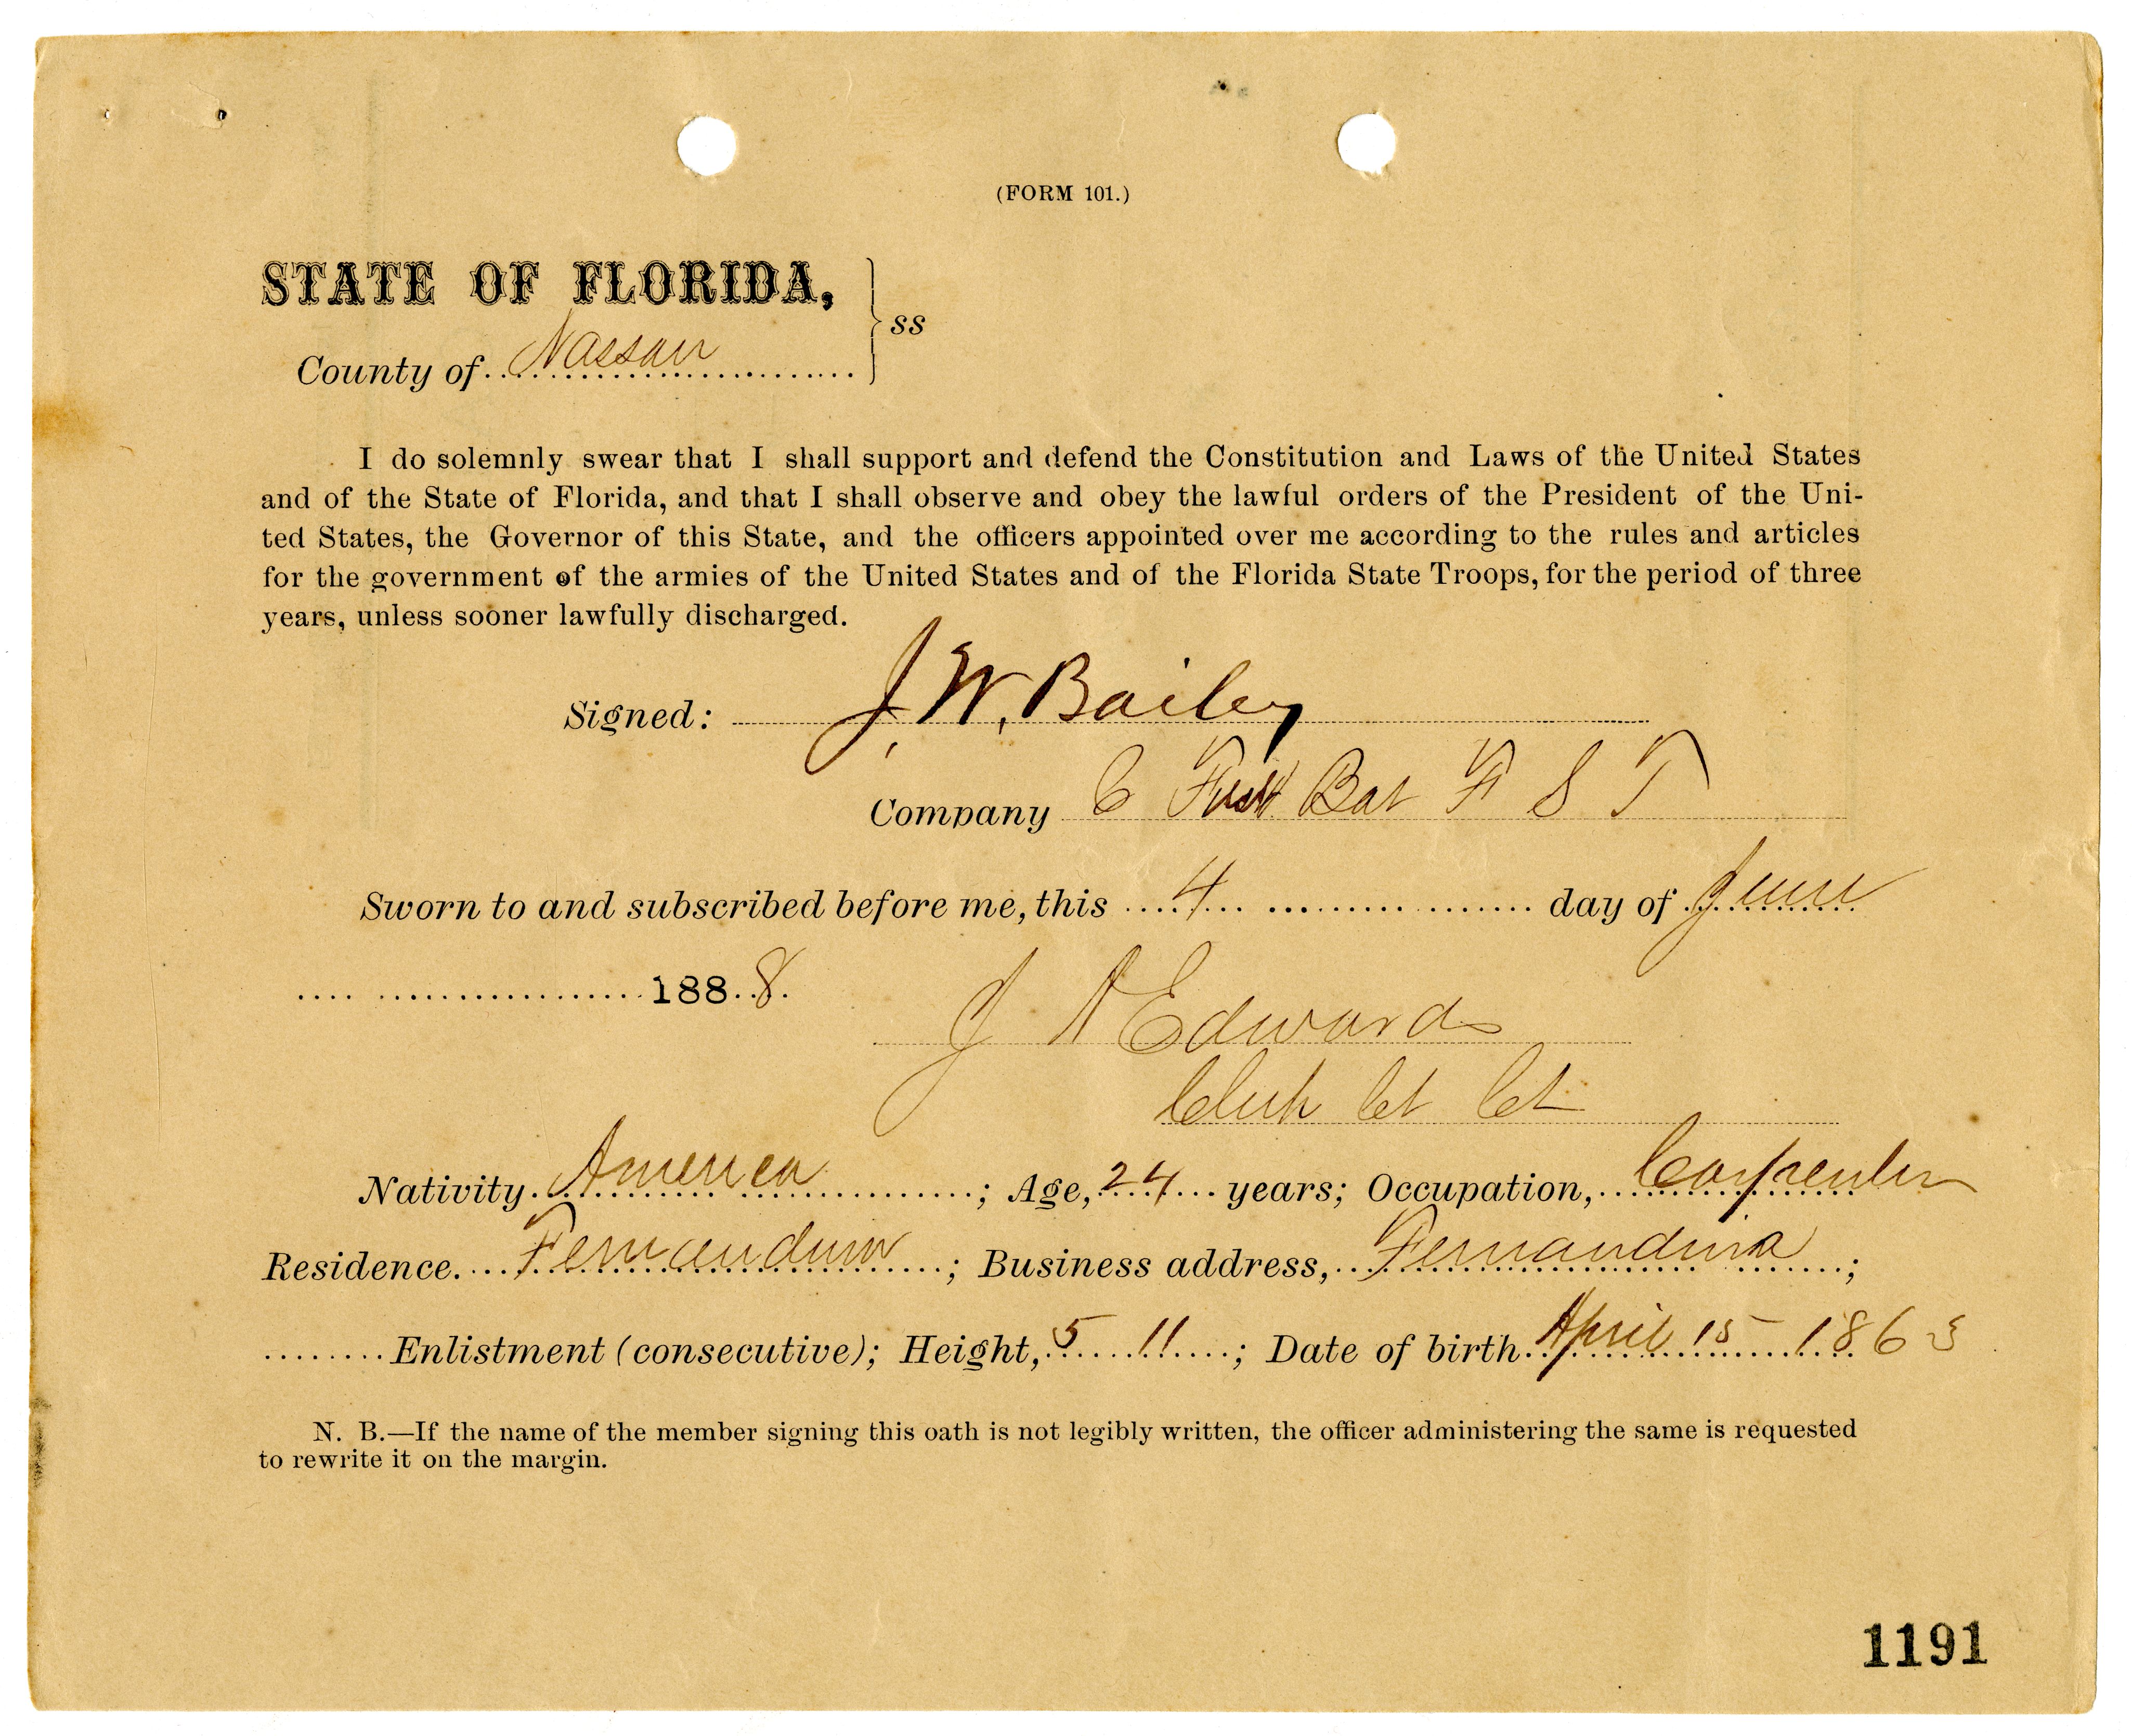 (FORM 101.)
STATE OF FLORIDA, } ss
County of Nassau
I do solemnly swear that I shall support and defend the Constitution and Laws of the United States
and of the State of Florida, and that I shall observe and obey the lawful orders of the President of the Uni-
ted States, the Governor of this State, and the officers appointed over me according to the rules and articles
for the government of the armies of the United States and of the Florida State Troops, for the period of three
years, unless sooner lawfully discharged.
Signed: J. W. Bailey
Company C First Bat F S T
Sworn to and subscribed before me, this 4 day of June
1888.
J A Edwards
Clerk Ct Ct
Nativity America; Age, 24 years; Occupation, Carpenter
Residence Fernandina; Business address, Fernandina;
Enlistment (consecutive); Height, 5 11; Date of birth April 15 1863
N. B.—If the name of the member signing this oath is not legibly written, the officer administering the same is requested
to rewrite it on the margin.
1191